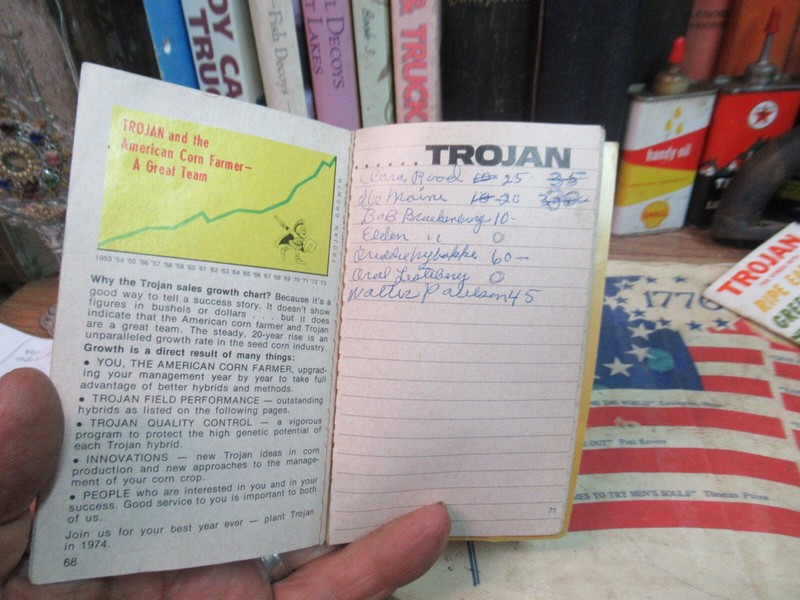 DECOYS
LAKES
Fish Decoys
Book 3
TRUCK
TROJAN and the
American Corn Farmer—
A Great Team
TROJAN GROWTH
1953 '54 '55 '56 '57 '58 '59 '60 '61 '62 '63 '64 '65 '66 '67 '68 '69 '70 '71 '72 '73
Why the Trojan sales growth chart? Because it's a
good way to tell a success story. It doesn't show
figures in bushels or dollars . . . . but it does
indicate that the American corn farmer and Trojan
are a great team. The steady, 20-year rise is an
unparalleled growth rate in the seed corn industry.
Growth is a direct result of many things:
• YOU, THE AMERICAN CORN FARMER, upgrad-
ing your management year by year to take full
advantage of better hybrids and methods.
• TROJAN FIELD PERFORMANCE — outstanding
hybrids as listed on the following pages.
• TROJAN QUALITY CONTROL — a vigorous
program to protect the high genetic potential of
each Trojan hybrid.
• INNOVATIONS — new Trojan ideas in corn
production and new approaches to the manage-
ment of your corn crop.
• PEOPLE who are interested in you and in your
success. Good service to you is important to both
of us.
Join us for your best year ever — plant Trojan
in 1974.
68
. . . . . . TROJAN
Rood 10 25 35
10-20
BoB 10-
Elden " 0
60—
Oral 0
Walter Paulsen 45
71
handy oil
SHELL
1776
TROJAN
RIPE
Paul Revere
TO TRY MEN'S SOULS" Thomas Paine